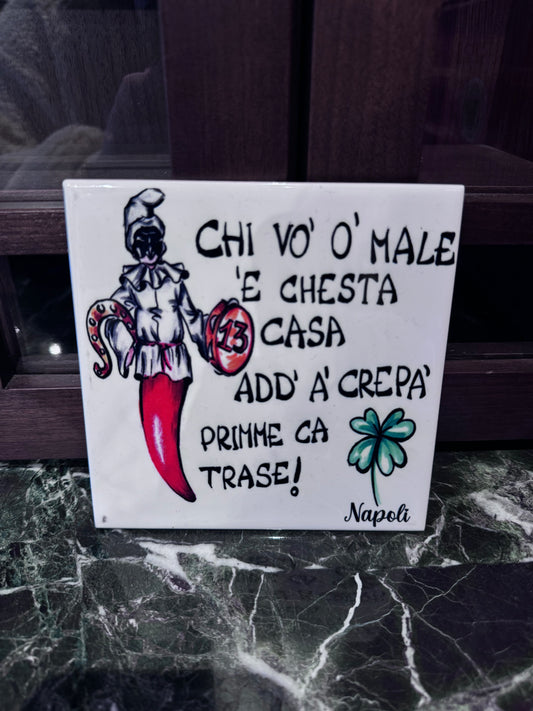 CHI VO' O' MALE
'E CHESTA
13
CASA
ADD' A' CREPA'
PRIMME CA
TRASE!
Napoli